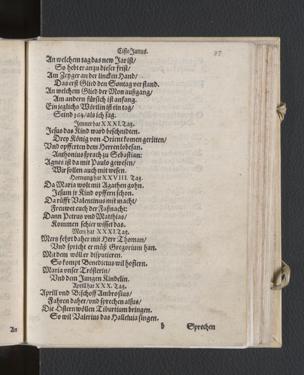 Cisio Janus.
An welchem tag das new Jar ist/
So hebt er an zu dieser frist/
Am Zeyger an der lincken Hand/
Das erst Glied den Sontag verstand.
An welchem Glied der Mon außgang/
Am andern fürsich ist anfang.
Ein jeglichs Wörtlin ist ein tag/
Seind als ich sag.
Jenner hat XXXI. Tag.
Jesus das Kind ward beschnidten.
Drey König von Orient komen geritten/
Vnd opfferten dem Herren lobesan.
Anthonius sprach zu Sebastian:
Agnes ist da mit Paulo gewesen/
Wir sollen auch mit wesen.
Hornung hat XXVIII. Tag.
Da Maria wolt mit Agathen gohn.
Jesum jr Kind opffern schon.
Da rüfft Valentinus mit macht/
Frewet euch der Faßnacht:
Dann Petrus vnd Matthias/
Kommen schier wisset das.
Mertz hat XXXI. Tag.
Mertz fehrt daher mit Herr Thoman/
Vnd spricht er müß Gregorium han.
Mit dem wöll er disputieren.
So kompt Benedictus wil hofieren.
Maria vnser Trösterin/
Vnd dem Jungen Kindelin.
Aprill hat XXX. Tag.
Aprill vnd Bischoff Ambrosius/
Fahren daher/ vnd sprechen alsus/
Die Ostern wöllen Tiburtium bringen.
So wil Valerius das Halleluia singen.
b Sprechen
An